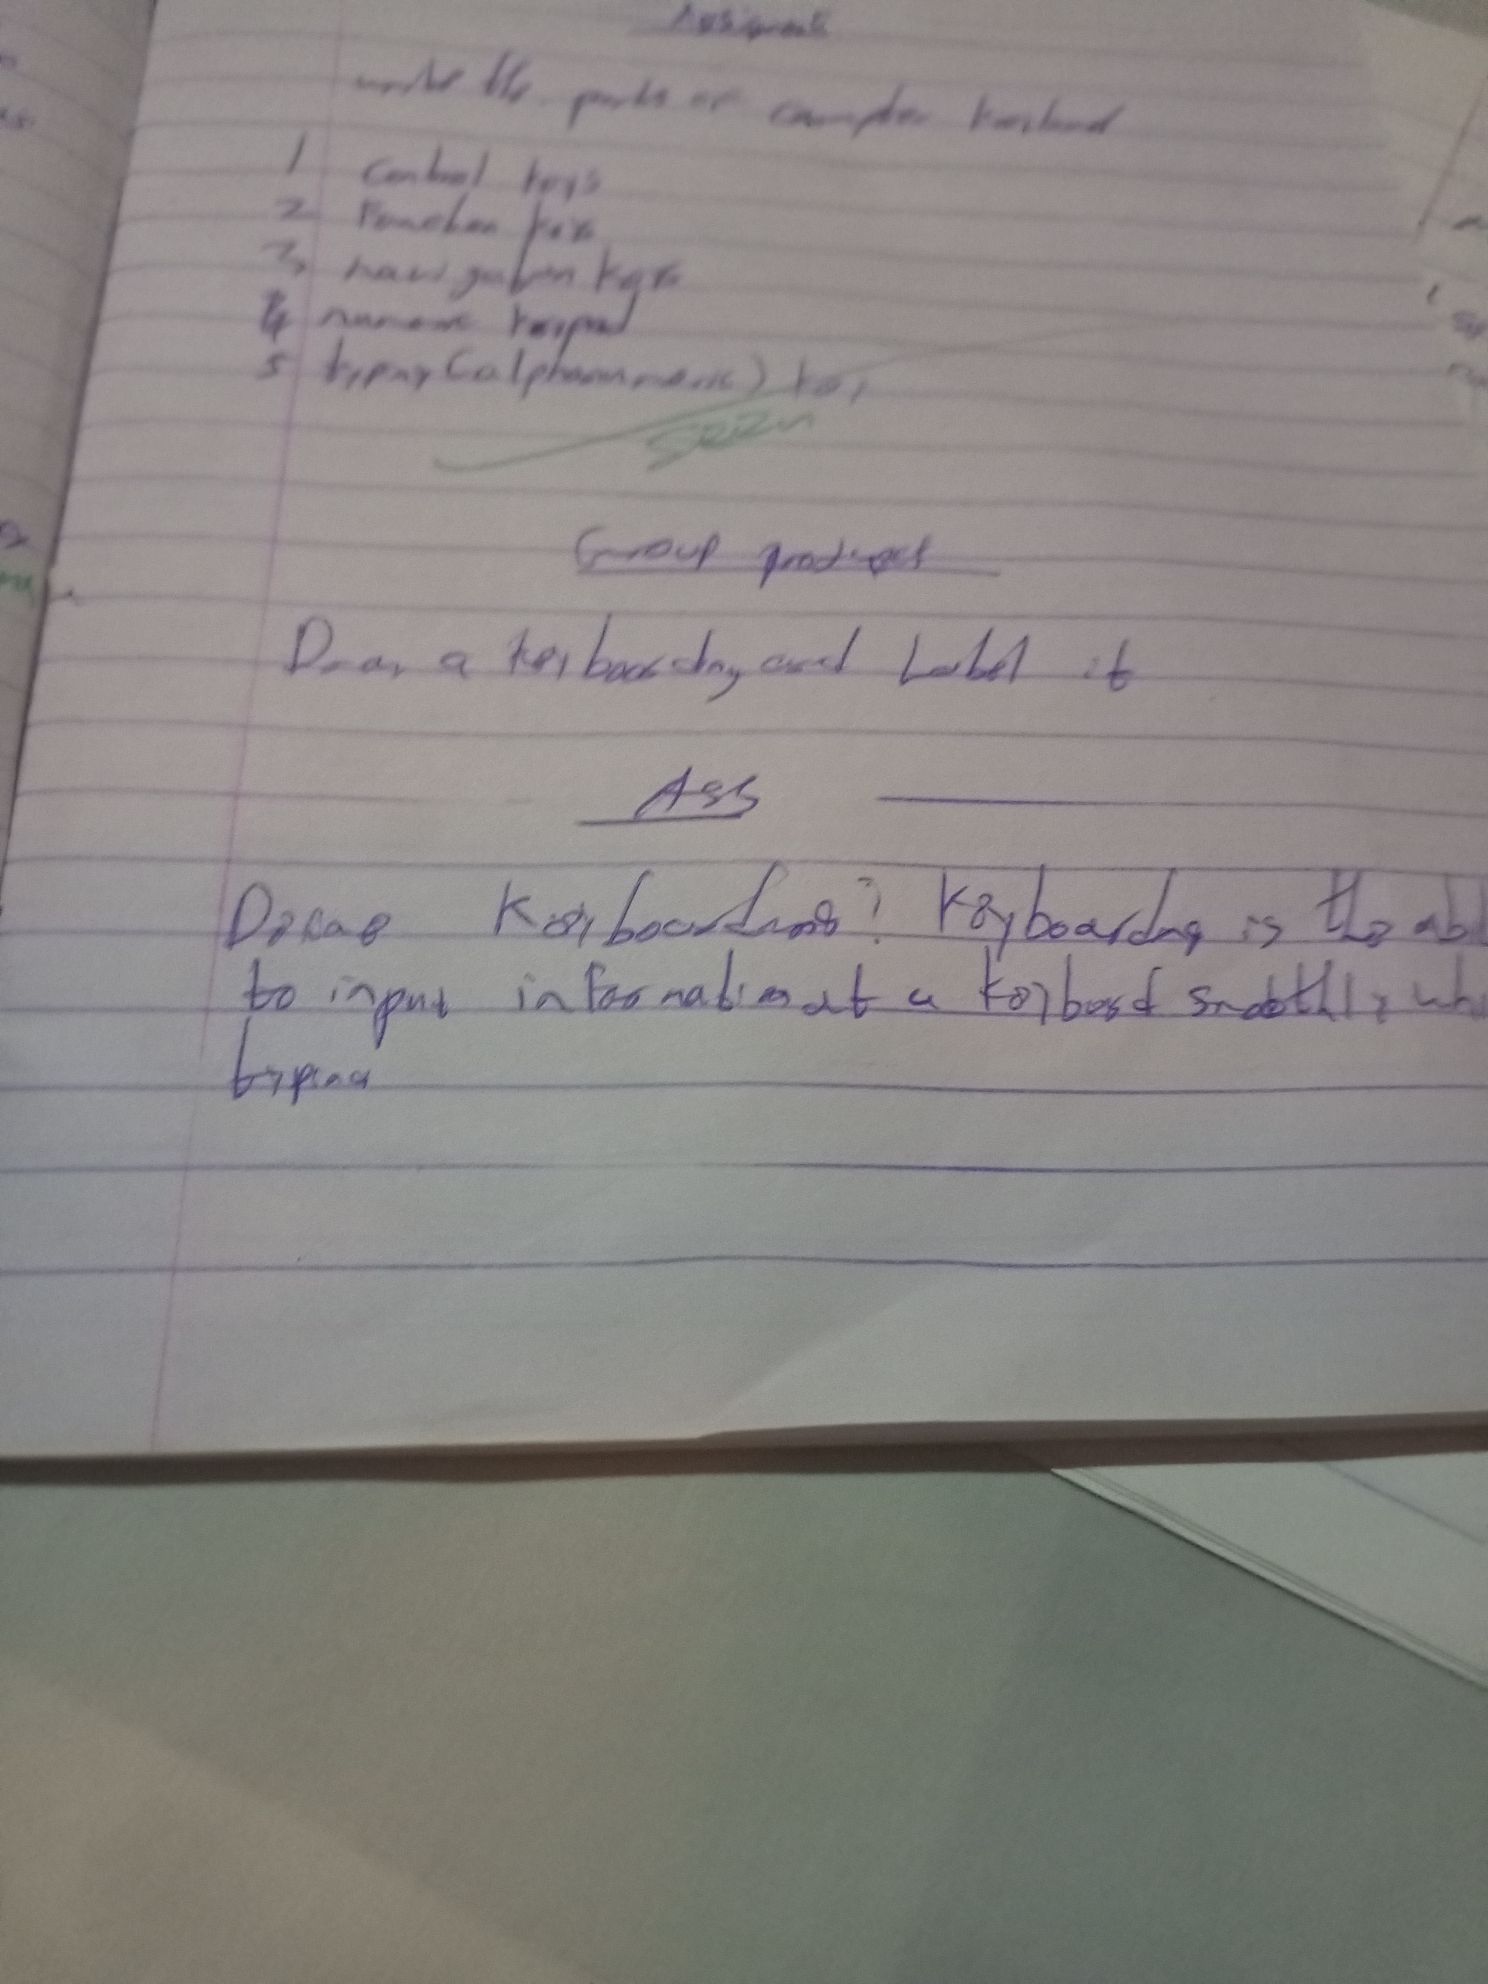 Assignment
write the parts of computer keyboard
1 control keys
2 Function keys
3, navigation keys
4 numeric keypad
5 typing (alphanumeric) key
seen
Group product
Draw a keyboarding and Label it
Ass
Define Keyboarding? Keyboarding is the abi
to input information at a keyboard smoothly whi
typing